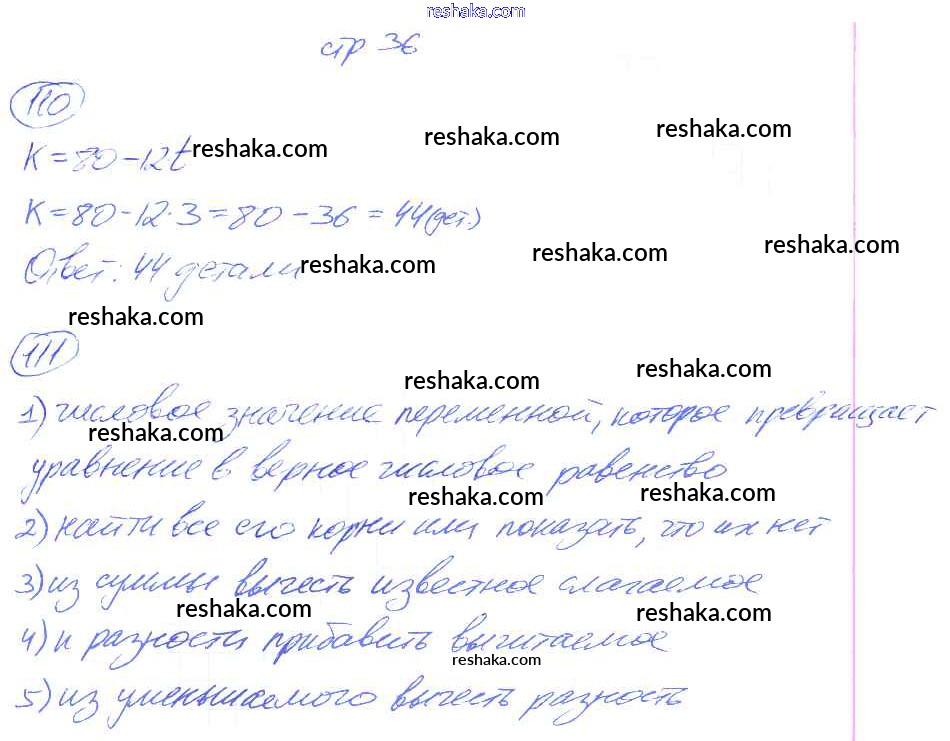 reshaka.com
стр 36
110
K = 80 - 12t reshaka.com reshaka.com reshaka.com
K = 80 - 12·3 = 80 - 36 = 44 (дет.)
Ответ: 44 детали reshaka.com reshaka.com reshaka.com
reshaka.com
111
reshaka.com reshaka.com
1) числовое значение переменной, которое превращает
reshaka.com
уравнение в верное числовое равенство
reshaka.com reshaka.com
2) найти все его корни или показать, что их нет
3) из суммы вычесть известное слагаемое
reshaka.com reshaka.com
4) к разности прибавить вычитаемое
reshaka.com
5) из уменьшаемого вычесть разность